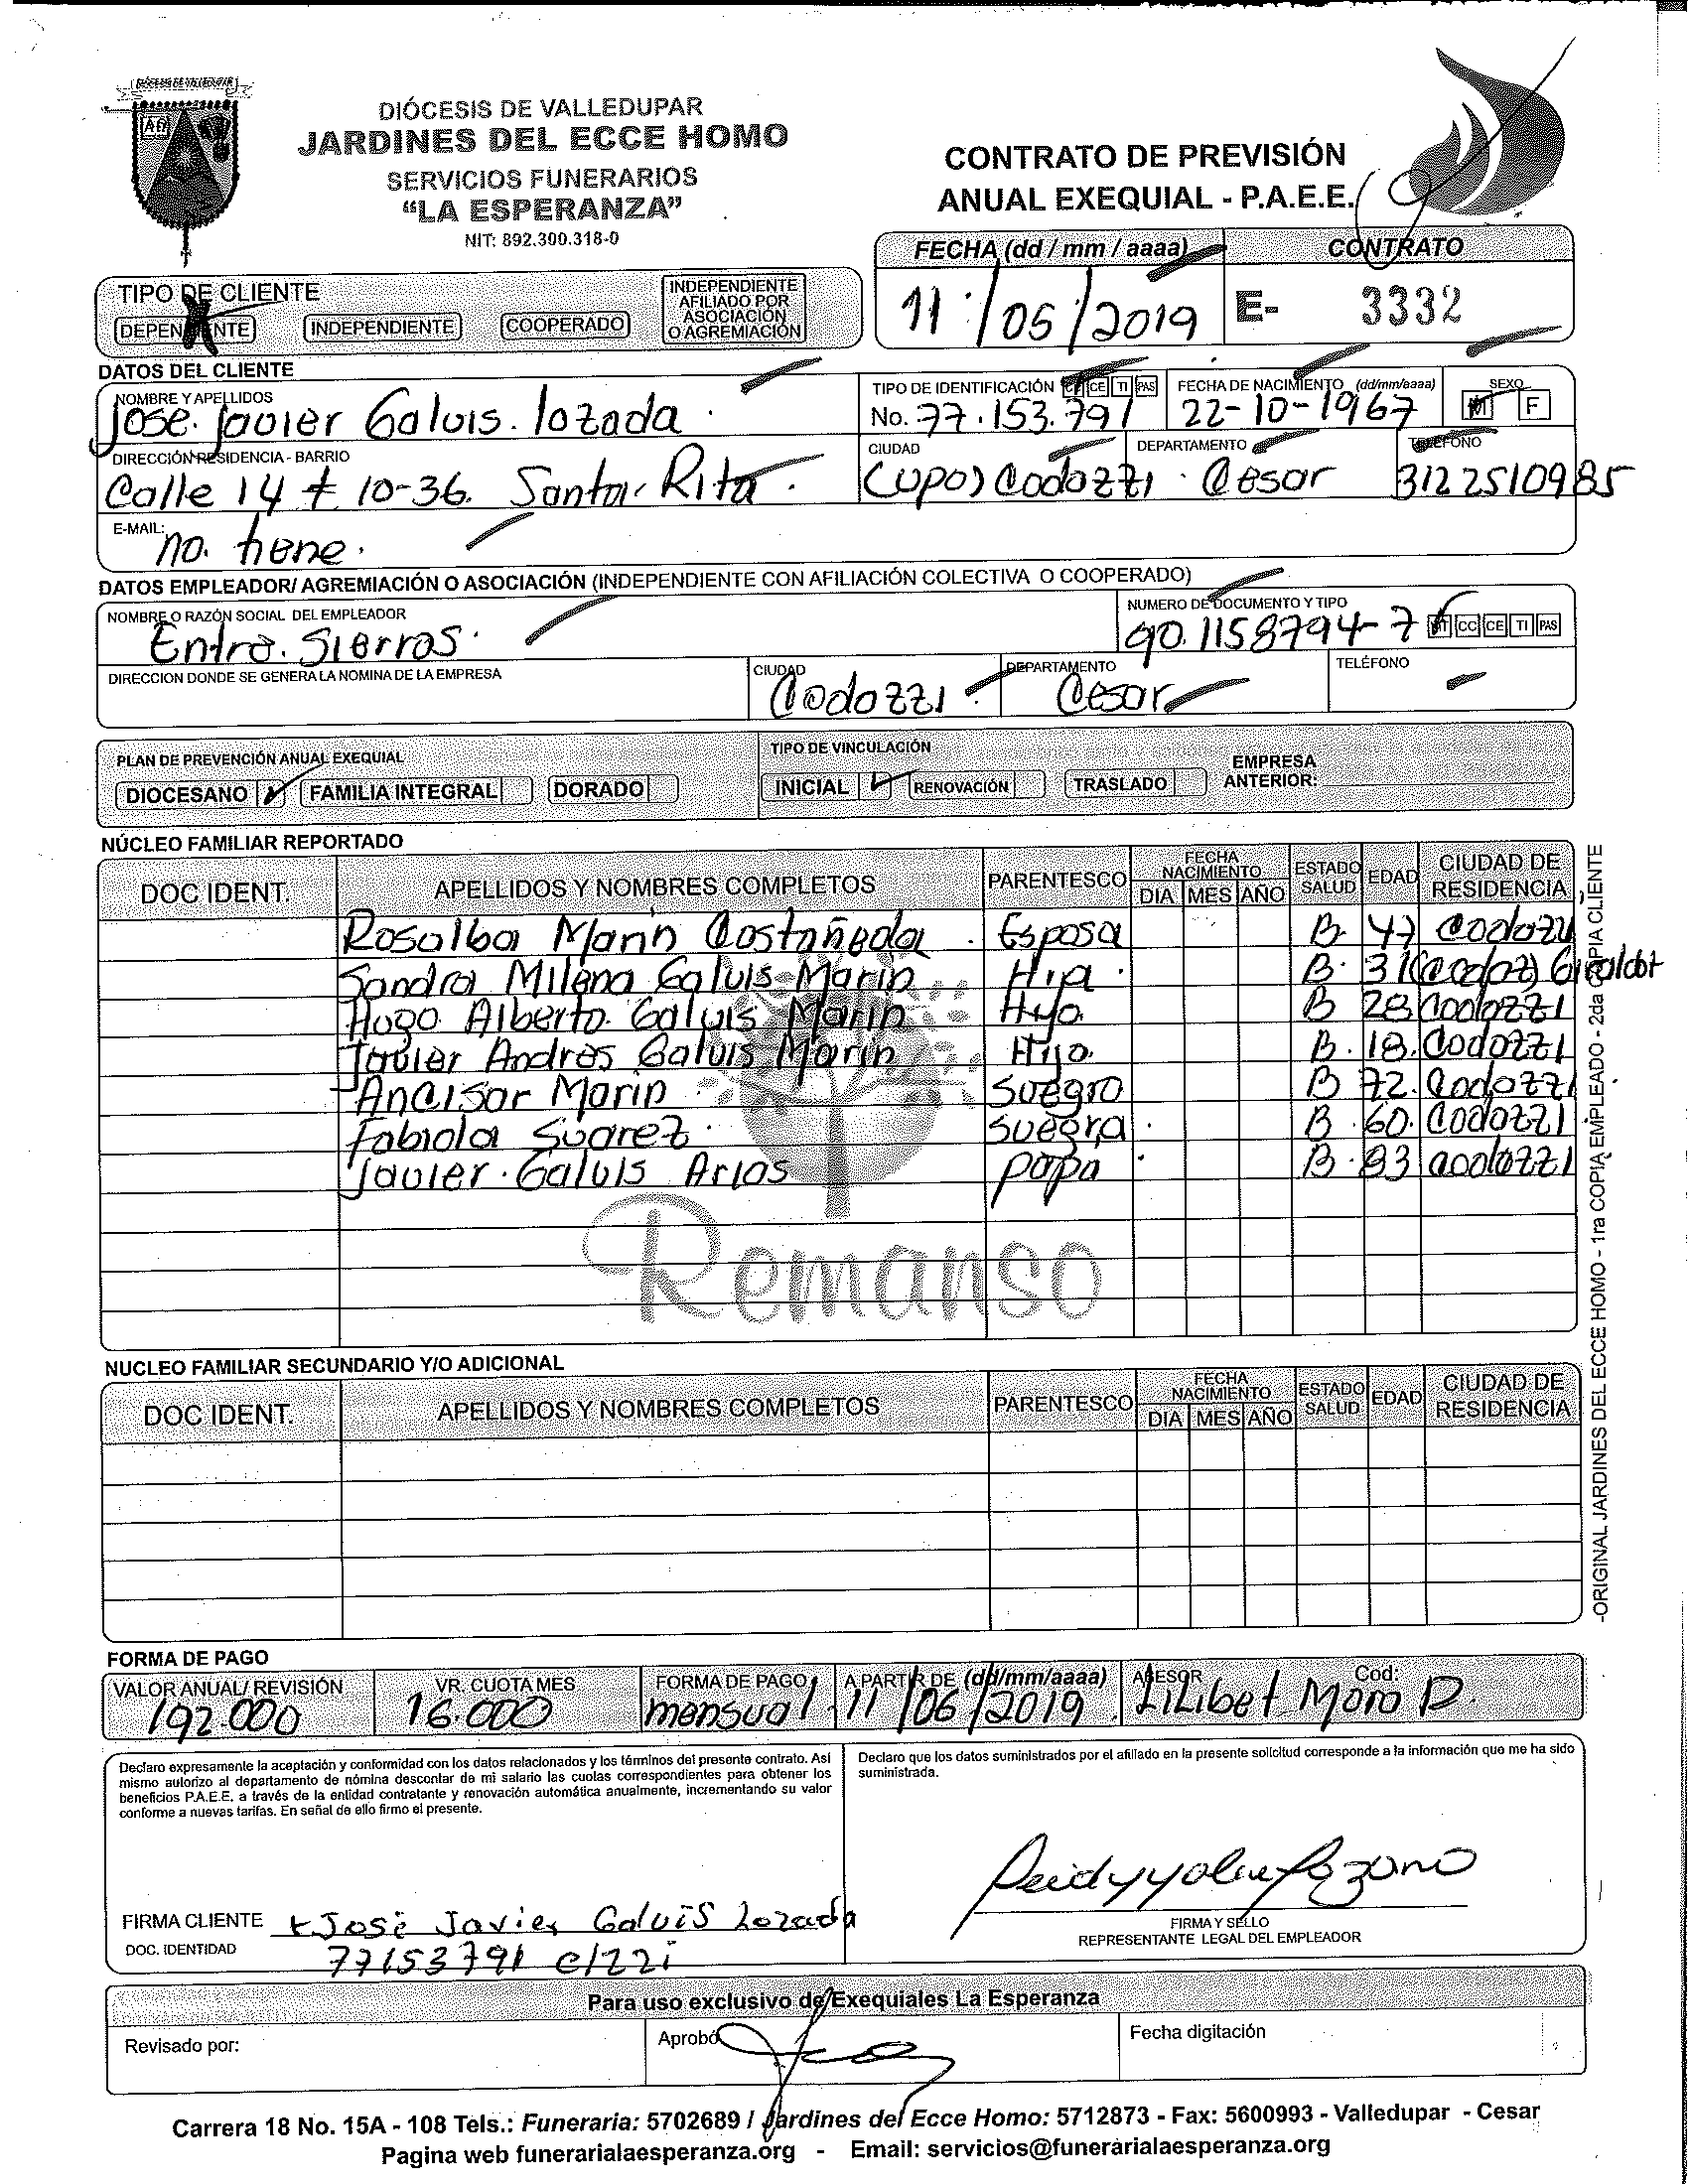 DIÓCESIS DE VALLEDUPAR
JARDINES DEL ECCE HOMO
SERVICIOS FUNERARIOS
"LA ESPERANZA"
NIT: 892.300.318-0
CONTRATO DE PREVISIÓN
ANUAL EXEQUIAL - P.A.E.E.
FECHA (dd / mm / aaaa) CONTRATO
11/05/2019 E- 3332
TIPO DE CLIENTE
DEPENDIENTE INDEPENDIENTE COOPERADO INDEPENDIENTE AFILIADO POR ASOCIACIÓN O AGREMIACIÓN
DATOS DEL CLIENTE
NOMBRE Y APELLIDOS TIPO DE IDENTIFICACIÓN CE TI PAS FECHA DE NACIMIENTO (dd/mm/aaaa) SEXO
Jose. Javier Galvis. lozada No. 77.153.791 22-10-1967 M F
DIRECCIÓN RESIDENCIA - BARRIO CIUDAD DEPARTAMENTO TELÉFONO
Calle 14 # 10-36. Santa Rita. Codazzi Cesar 3122510985
E-MAIL: no. tiene.
DATOS EMPLEADOR/ AGREMIACIÓN O ASOCIACIÓN (INDEPENDIENTE CON AFILIACIÓN COLECTIVA O COOPERADO)
NOMBRE O RAZÓN SOCIAL DEL EMPLEADOR NUMERO DE DOCUMENTO Y TIPO
Entre. Sierras. 90.1158794-7 NIT CC CE TI PAS
DIRECCION DONDE SE GENERA LA NOMINA DE LA EMPRESA CIUDAD DEPARTAMENTO TELÉFONO
Codazzi Cesar -
PLAN DE PREVENCIÓN ANUAL EXEQUIAL TIPO DE VINCULACIÓN
DIOCESANO FAMILIA INTEGRAL DORADO INICIAL RENOVACIÓN TRASLADO EMPRESA ANTERIOR:
NÚCLEO FAMILIAR REPORTADO
DOC IDENT. APELLIDOS Y NOMBRES COMPLETOS PARENTESCO FECHA NACIMIENTO DIA MES AÑO ESTADO SALUD EDAD CIUDAD DE RESIDENCIA
Rosalba Marin Costañeda Esposa B 47 Codazzi
Sandra Milena Galvis Marin Hija B. 31 (Codaz) Giraldot
Hugo Alberto Galvis Marin Hijo B 28 Codazzi
Javier Andres Galvis Marin Hijo. B. 18. Codazzi
Ancisar Marin Suegro B 72. Codazzi
Fabiola Suarez Suegra B 60. Codazzi
Javier. Galvis Arias papa B. 83 Codazzi
Remanso
NUCLEO FAMILIAR SECUNDARIO Y/O ADICIONAL
DOC IDENT. APELLIDOS Y NOMBRES COMPLETOS PARENTESCO FECHA NACIMIENTO DIA MES AÑO ESTADO SALUD EDAD CIUDAD DE RESIDENCIA
-ORIGINAL JARDINES DEL ECCE HOMO - 1ra COPIA EMPLEADO - 2da COPIA CLIENTE
FORMA DE PAGO
VALOR ANUAL/ REVISIÓN VR. CUOTA MES FORMA DE PAGO A PARTIR DE (dd/mm/aaaa) ASESOR Cod:
192.000 16.000 mensual 11/06/2019 Lilibet Mora D.
Declaro expresamente la aceptación y conformidad con los datos relacionados y los términos del presente contrato. Así
mismo autorizo al departamento de nómina descontar de mi salario las cuotas correspondientes para obtener los
beneficios P.A.E.E. a través de la entidad contratante y renovación automática anualmente, incrementando su valor
conforme a nuevas tarifas. En señal de ello firmo el presente.
Declaro que los datos suministrados por el afiliado en la presente solicitud corresponde a la información que me ha sido
suministrada.
FIRMA CLIENTE José Javier Galvis Lozada
DOC. IDENTIDAD 77153791 c/zzi
FIRMA Y SELLO
REPRESENTANTE LEGAL DEL EMPLEADOR
Para uso exclusivo de Exequiales La Esperanza
Revisado por: Aprobó Fecha digitación
Carrera 18 No. 15A - 108 Tels.: Funeraria: 5702689 / Jardines del Ecce Homo: 5712873 - Fax: 5600993 - Valledupar - Cesar
Pagina web funerarialaesperanza.org - Email: servicios@funerarialaesperanza.org